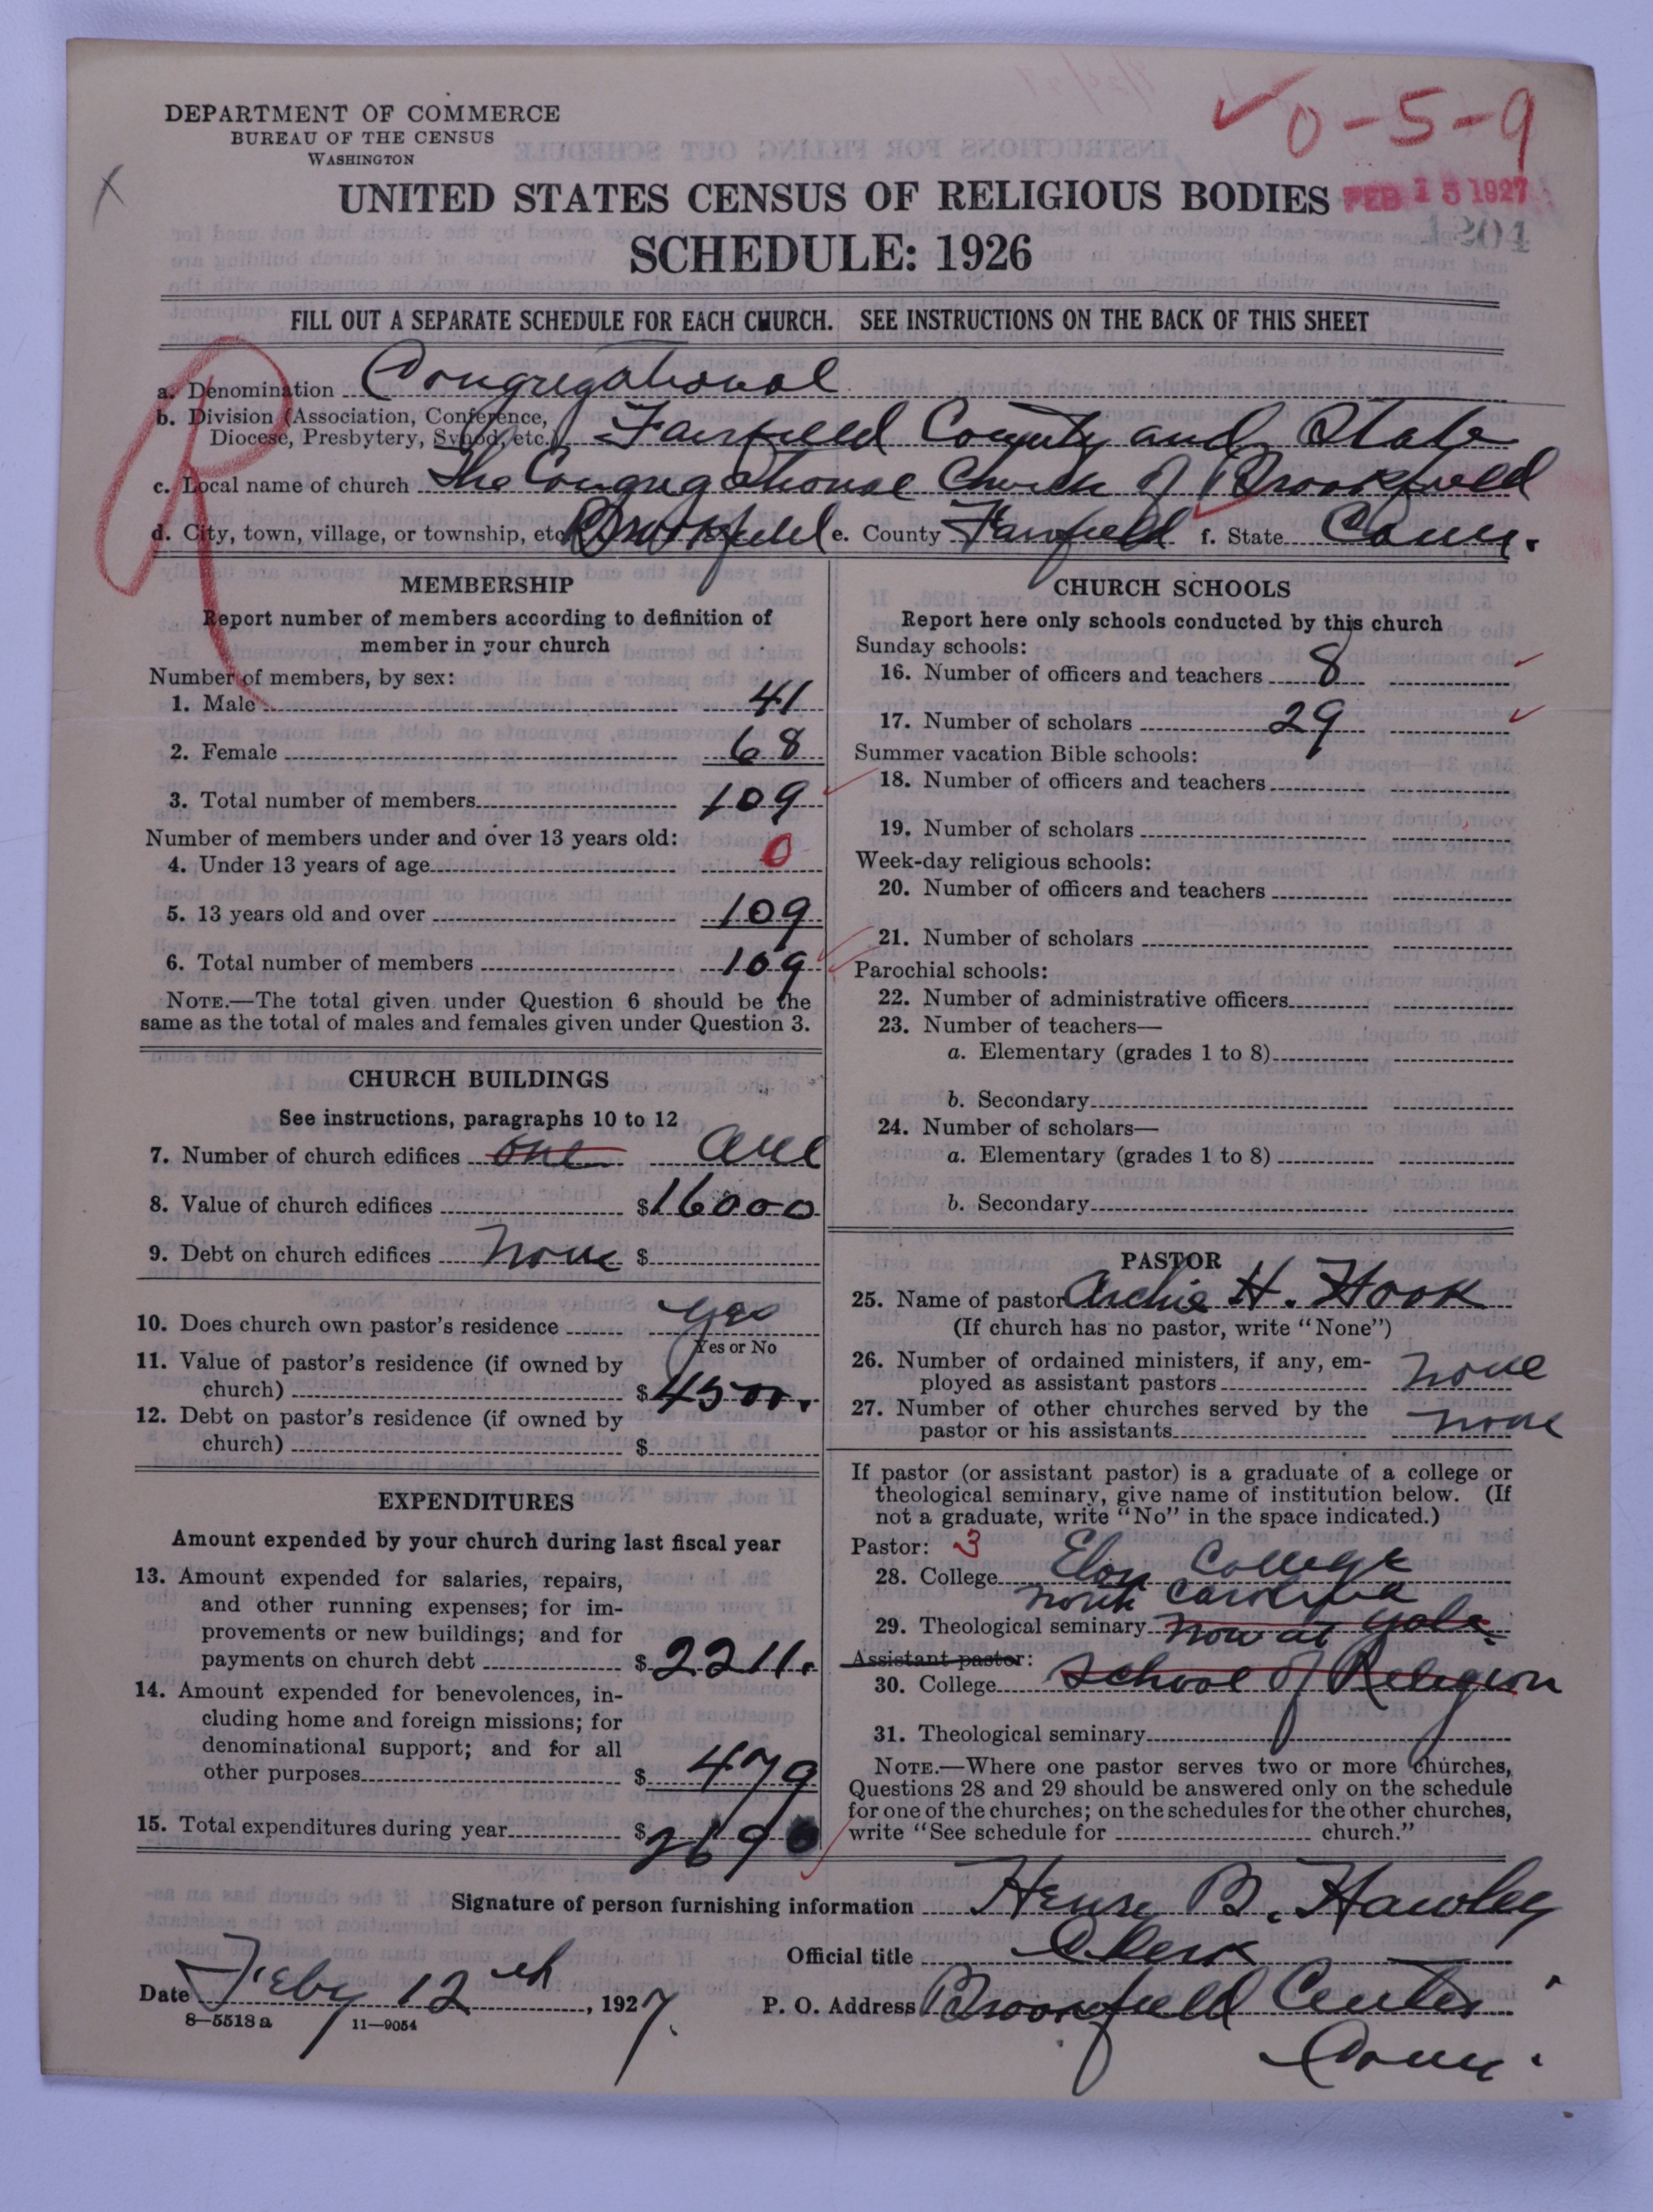 0-5-9
DEPARTMENT OF COMMERCE
BUREAU OF THE CENSUS
WASHINGTON
X
UNITED STATES CENSUS OF RELIGIOUS BODIES
FEB 15 1927
1204
SCHEDULE: 1926
FILL OUT A SEPARATE SCHEDULE FOR EACH CHURCH. SEE INSTRUCTIONS ON THE BACK OF THIS SHEET
R
a. Denomination Congregational
b. Division (Association, Conference,
Diocese, Presbytery, Synod, etc.) Fairfield County and State
c. Local name of church The Congregational Church of Brookfield
d. City, town, village, or township, etc. Brookfield e. County Fairfield f. State Conn.
MEMBERSHIP
Report number of members according to definition of
member in your church
Number of members, by sex:
1. Male 41
2. Female 68
3. Total number of members 109
Number of members under and over 13 years old:
4. Under 13 years of age 0
5. 13 years old and over 109
6. Total number of members 109
NOTE.—The total given under Question 6 should be the
same as the total of males and females given under Question 3.
CHURCH BUILDINGS
See instructions, paragraphs 10 to 12
7. Number of church edifices one one
8. Value of church edifices $16000
9. Debt on church edifices None $
10. Does church own pastor's residence yes
Yes or No
11. Value of pastor's residence (if owned by
church) $4500.
12. Debt on pastor's residence (if owned by
church) $
EXPENDITURES
Amount expended by your church during last fiscal year
13. Amount expended for salaries, repairs,
and other running expenses; for im-
provements or new buildings; and for
payments on church debt $2211.
14. Amount expended for benevolences, in-
cluding home and foreign missions; for
denominational support; and for all
other purposes $479
15. Total expenditures during year $2690
CHURCH SCHOOLS
Report here only schools conducted by this church
Sunday schools:
16. Number of officers and teachers 8
17. Number of scholars 29
Summer vacation Bible schools:
18. Number of officers and teachers
19. Number of scholars
Week-day religious schools:
20. Number of officers and teachers
21. Number of scholars
Parochial schools:
22. Number of administrative officers
23. Number of teachers—
a. Elementary (grades 1 to 8)
b. Secondary
24. Number of scholars—
a. Elementary (grades 1 to 8)
b. Secondary
PASTOR
25. Name of pastor Archie H. Hook
(If church has no pastor, write "None")
26. Number of ordained ministers, if any, em-
ployed as assistant pastors none
27. Number of other churches served by the
pastor or his assistants none
If pastor (or assistant pastor) is a graduate of a college or
theological seminary, give name of institution below. (If
not a graduate, write "No" in the space indicated.)
Pastor: 3
28. College Elon College
North Carolina
29. Theological seminary now at Yale
Assistant pastor:
30. College School of Religion
31. Theological seminary
NOTE.—Where one pastor serves two or more churches,
Questions 28 and 29 should be answered only on the schedule
for one of the churches; on the schedules for the other churches,
write "See schedule for church."
Signature of person furnishing information Henry B. Hawley
Official title Clerk
Date Feby 12th, 1927.
P. O. Address Brookfield Center
Conn.
8—5518 a 11—9054